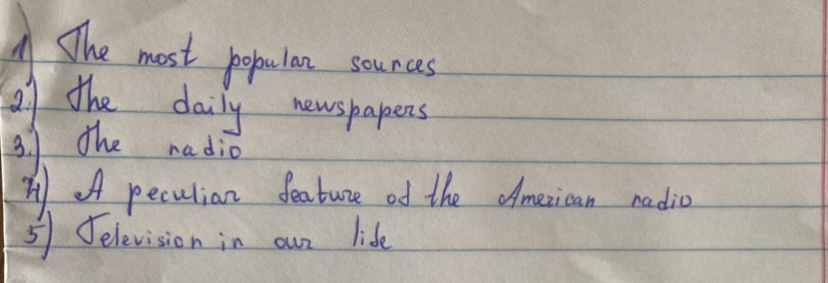 1) The most popular sources
2.) The daily newspapers
3.) The radio
4) A peculiar feature of the American radio
5) Television in our life